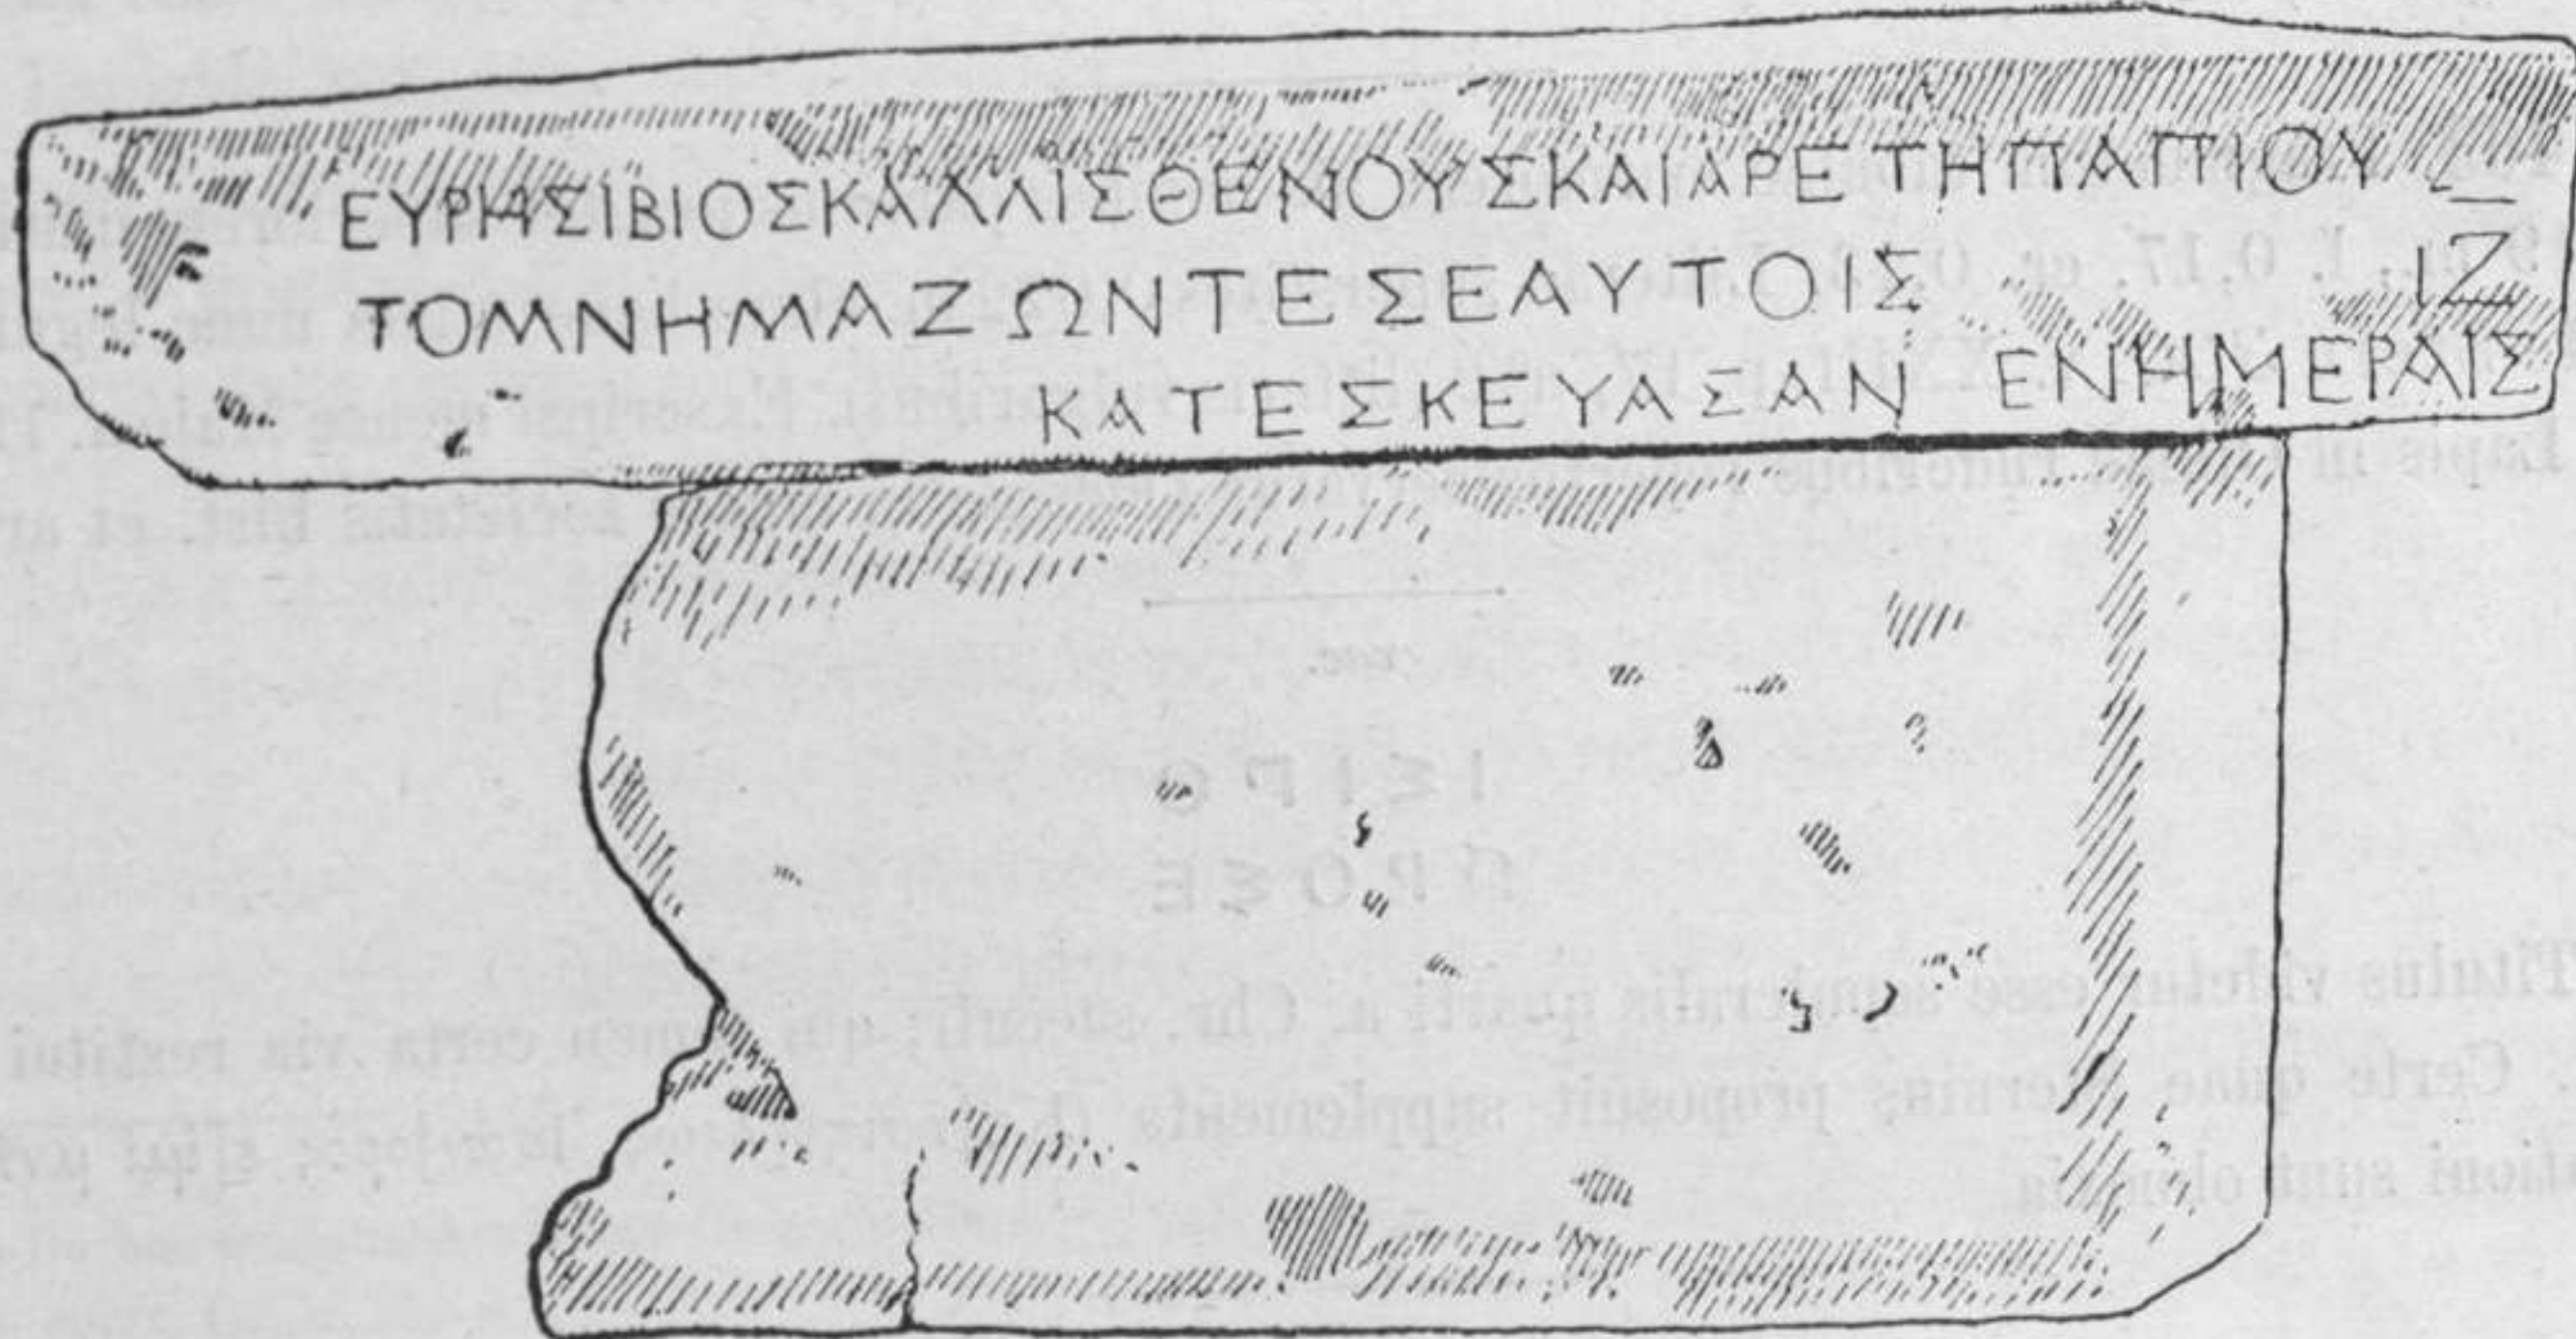 ΕΥΡΗΣΙΒΙΟΣΚΑΛΛΙΣΘΕΝΟΥΣΚΑΙΑΡΕΤΗΠΑΠΙΟΥ
ΤΟΜΝΗΜΑΖΩΝΤΕΣΕΑΥΤΟΙΣ ΙΖ
ΚΑΤΕΣΚΕΥΑΣΑΝ ΕΝΗΜΕΡΑΙΣ